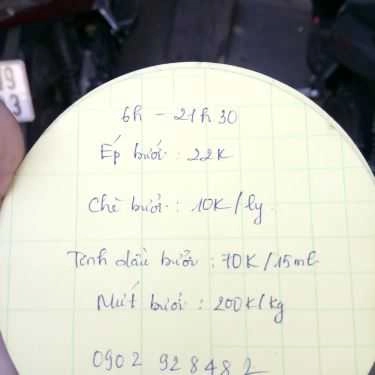 9
3
6h - 21h30
Ép bưởi : 22K
Chè bưởi : 10K/ly
Tinh dầu bưởi : 70K/15ml
Mứt bưởi : 200K/kg
0902 928482